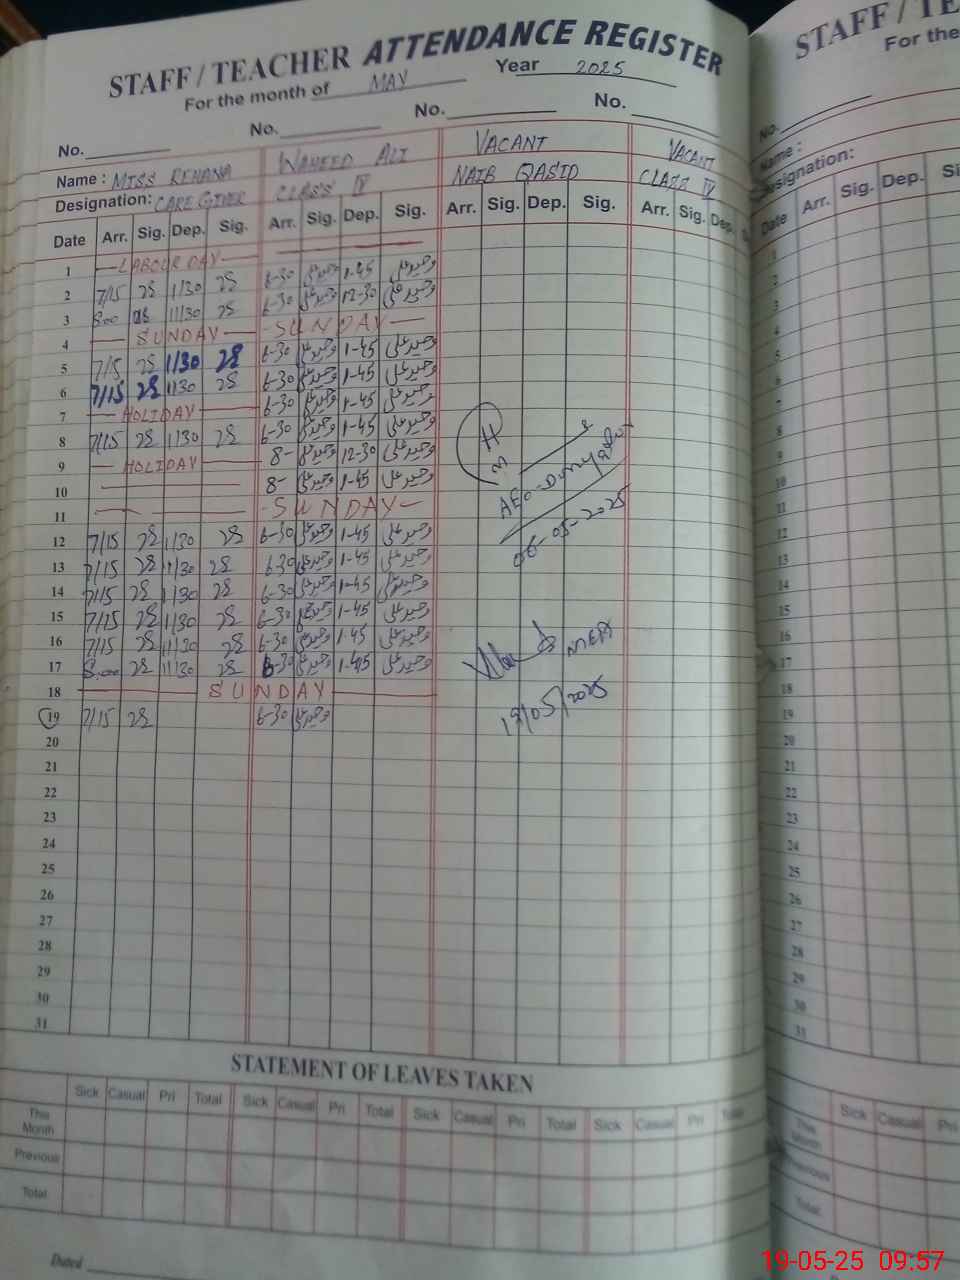 STAFF / TEACHER ATTENDANCE REGISTER
For the month of MAY Year 2025
No. No. No. No.
Name : MISS REHANA WAHEED ALI VACANT VACANT
Designation: CARE GIVER CLASS IV NAIB QASID CLASS IV
Date Arr. Sig. Dep. Sig. Arr. Sig. Dep. Sig. Arr. Sig. Dep. Sig. Arr. Sig. Dep.
1 LABOUR DAY
2 7/15 1/30 6-30 وحید علی 1-45 وحید علی
3 8.00 11/30 6-30 وحید علی 12-30 وحید علی
4 SUNDAY SUNDAY
5 7/15 1/30 6-30 وحید علی 1-45 وحید علی
6 7/15 1/30 6-30 وحید علی 1-45 وحید علی
7 HOLIDAY 6-30 وحید علی 1-45 وحید علی
8 7/15 1/30 6-30 وحید علی 1-45 وحید علی
9 HOLIDAY 8- وحید علی 12-30 وحید علی
10 8- وحید علی 1-45 وحید علی
11 SUNDAY
12 7/15 1/30 6-30 وحید علی 1-45 وحید علی
13 7/15 1/30 6-30 وحید علی 1-45 وحید علی
14 7/15 1/30 6-30 وحید علی 1-45 وحید علی
15 7/15 1/30 6-30 وحید علی 1-45 وحید علی
16 7/15 11/30 6-30 وحید علی 1-45 وحید علی
17 8.00 11/30 6-30 وحید علی 1-45 وحید علی
18 SUNDAY
19 7/15 6-30 وحید علی
20
21
22
23
24
25
26
27
28
29
30
31
AEO
06-05-2025
MEA
19/05/2025
STATEMENT OF LEAVES TAKEN
Sick Casual Pri Total Sick Casual Pri Total Sick Casual Pri Total Sick Casual Pri Total
This Month
Previous
Total
Dated
STAFF / TE
For the
No.
Name :
Designation:
Date Arr. Sig. Dep.
1
2
3
4
5
6
7
8
9
10
11
12
13
14
15
16
17
18
19
20
21
22
23
24
25
26
27
28
29
30
31
Sick Casual Pri
This Month
Previous
Total
19-05-25 09.57